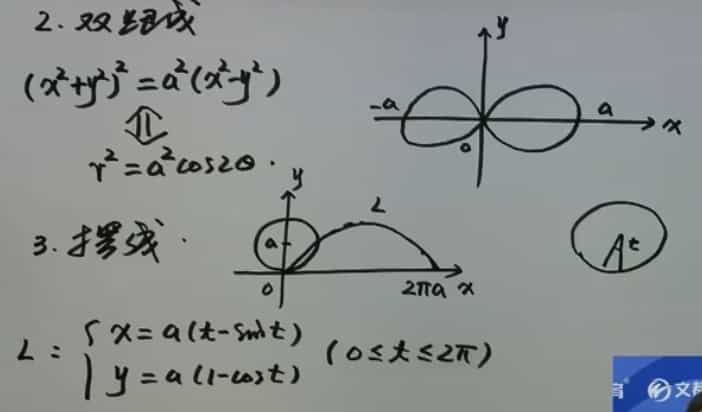 2. 双纽线
(x²+y²)²=a²(x²-y²)
⇕
r²=a²cos2θ.
y
-a
a
x
0
3. 摆线.
y
a
L
t
0
2πa
x
L: { x=a(t-sint)
y=a(1-cost)
(0≤t≤2π)
育
文都